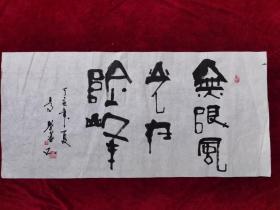 無限風
光在
險峰
丁亥年夏